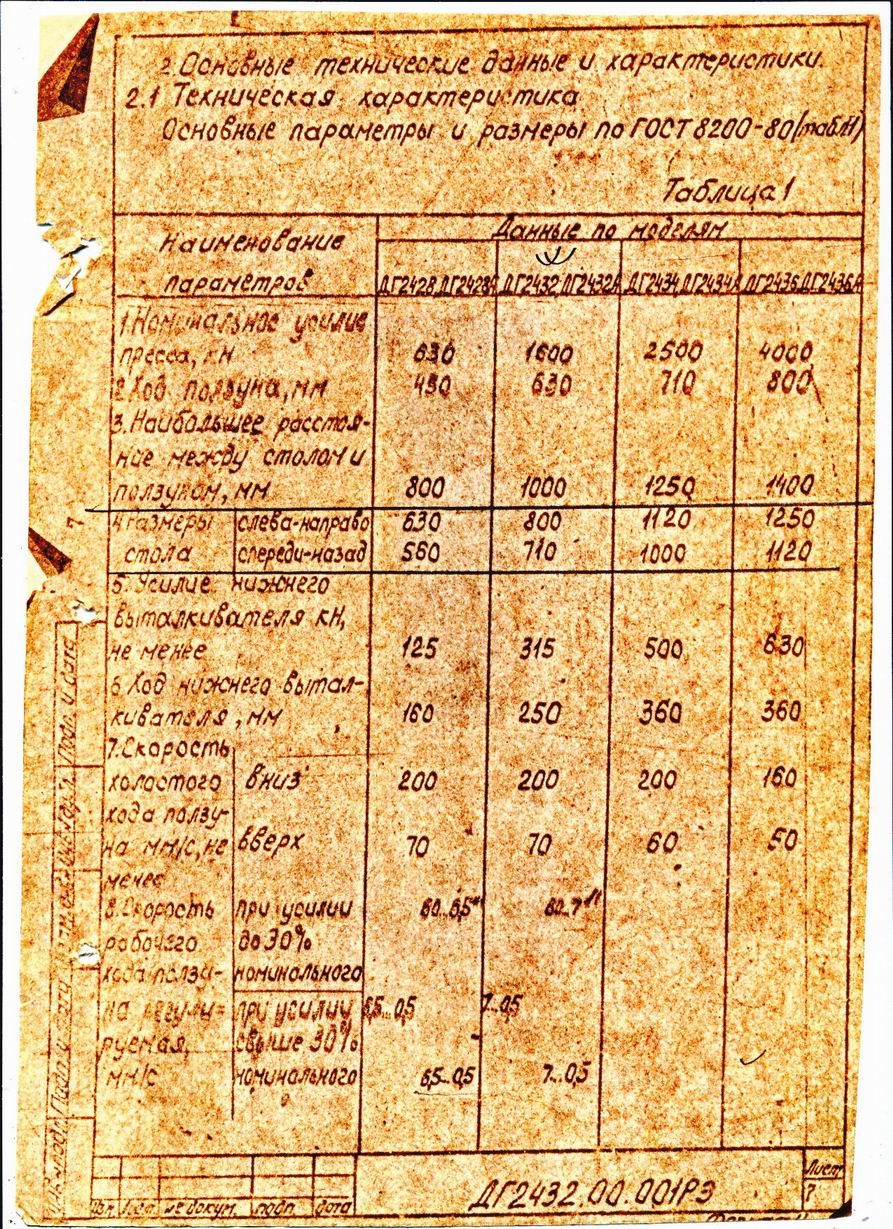 2. Основные технические данные и характеристики.
2.1 Техническая характеристика
Основные параметры и размеры по ГОСТ 8200-80 (табл.1)
Таблица 1
Наименование параметров Данные по моделям
ДГ2428, ДГ2428А ДГ2432, ДГ2432А ДГ2434, ДГ2434А ДГ2436, ДГ2436А
1. Номинальное усилие
пресса, кН 630 1600 2500 4000
2. Ход ползуна, мм 450 630 710 800
3. Наибольшее расстоя-
ние между столом и
ползуном, мм 800 1000 1250 1400
4. Размеры слева-направо 630 800 1120 1250
стола спереди-назад 560 710 1000 1120
5. Усилие нижнего
выталкивателя кН,
не менее 125 315 500 630
6. Ход нижнего вытал-
кивателя, мм 160 250 360 360
7. Скорость
холостого вниз 200 200 200 160
хода ползу-
на мм/с, не вверх 70 70 60 50
менее
8. Скорость при усилии 60...6,5 60...7
рабочего до 30%
хода ползу- номинального
на регули- при усилии 6,5...0,5 7...0,5
руемая, свыше 30%
мм/с номинального 6,5...0,5 7...0,5
7
Подп. и дата
Подп. и дата
Изм. Лист № докум. подп. дата
ДГ2432.00.001РЭ
Лист
7